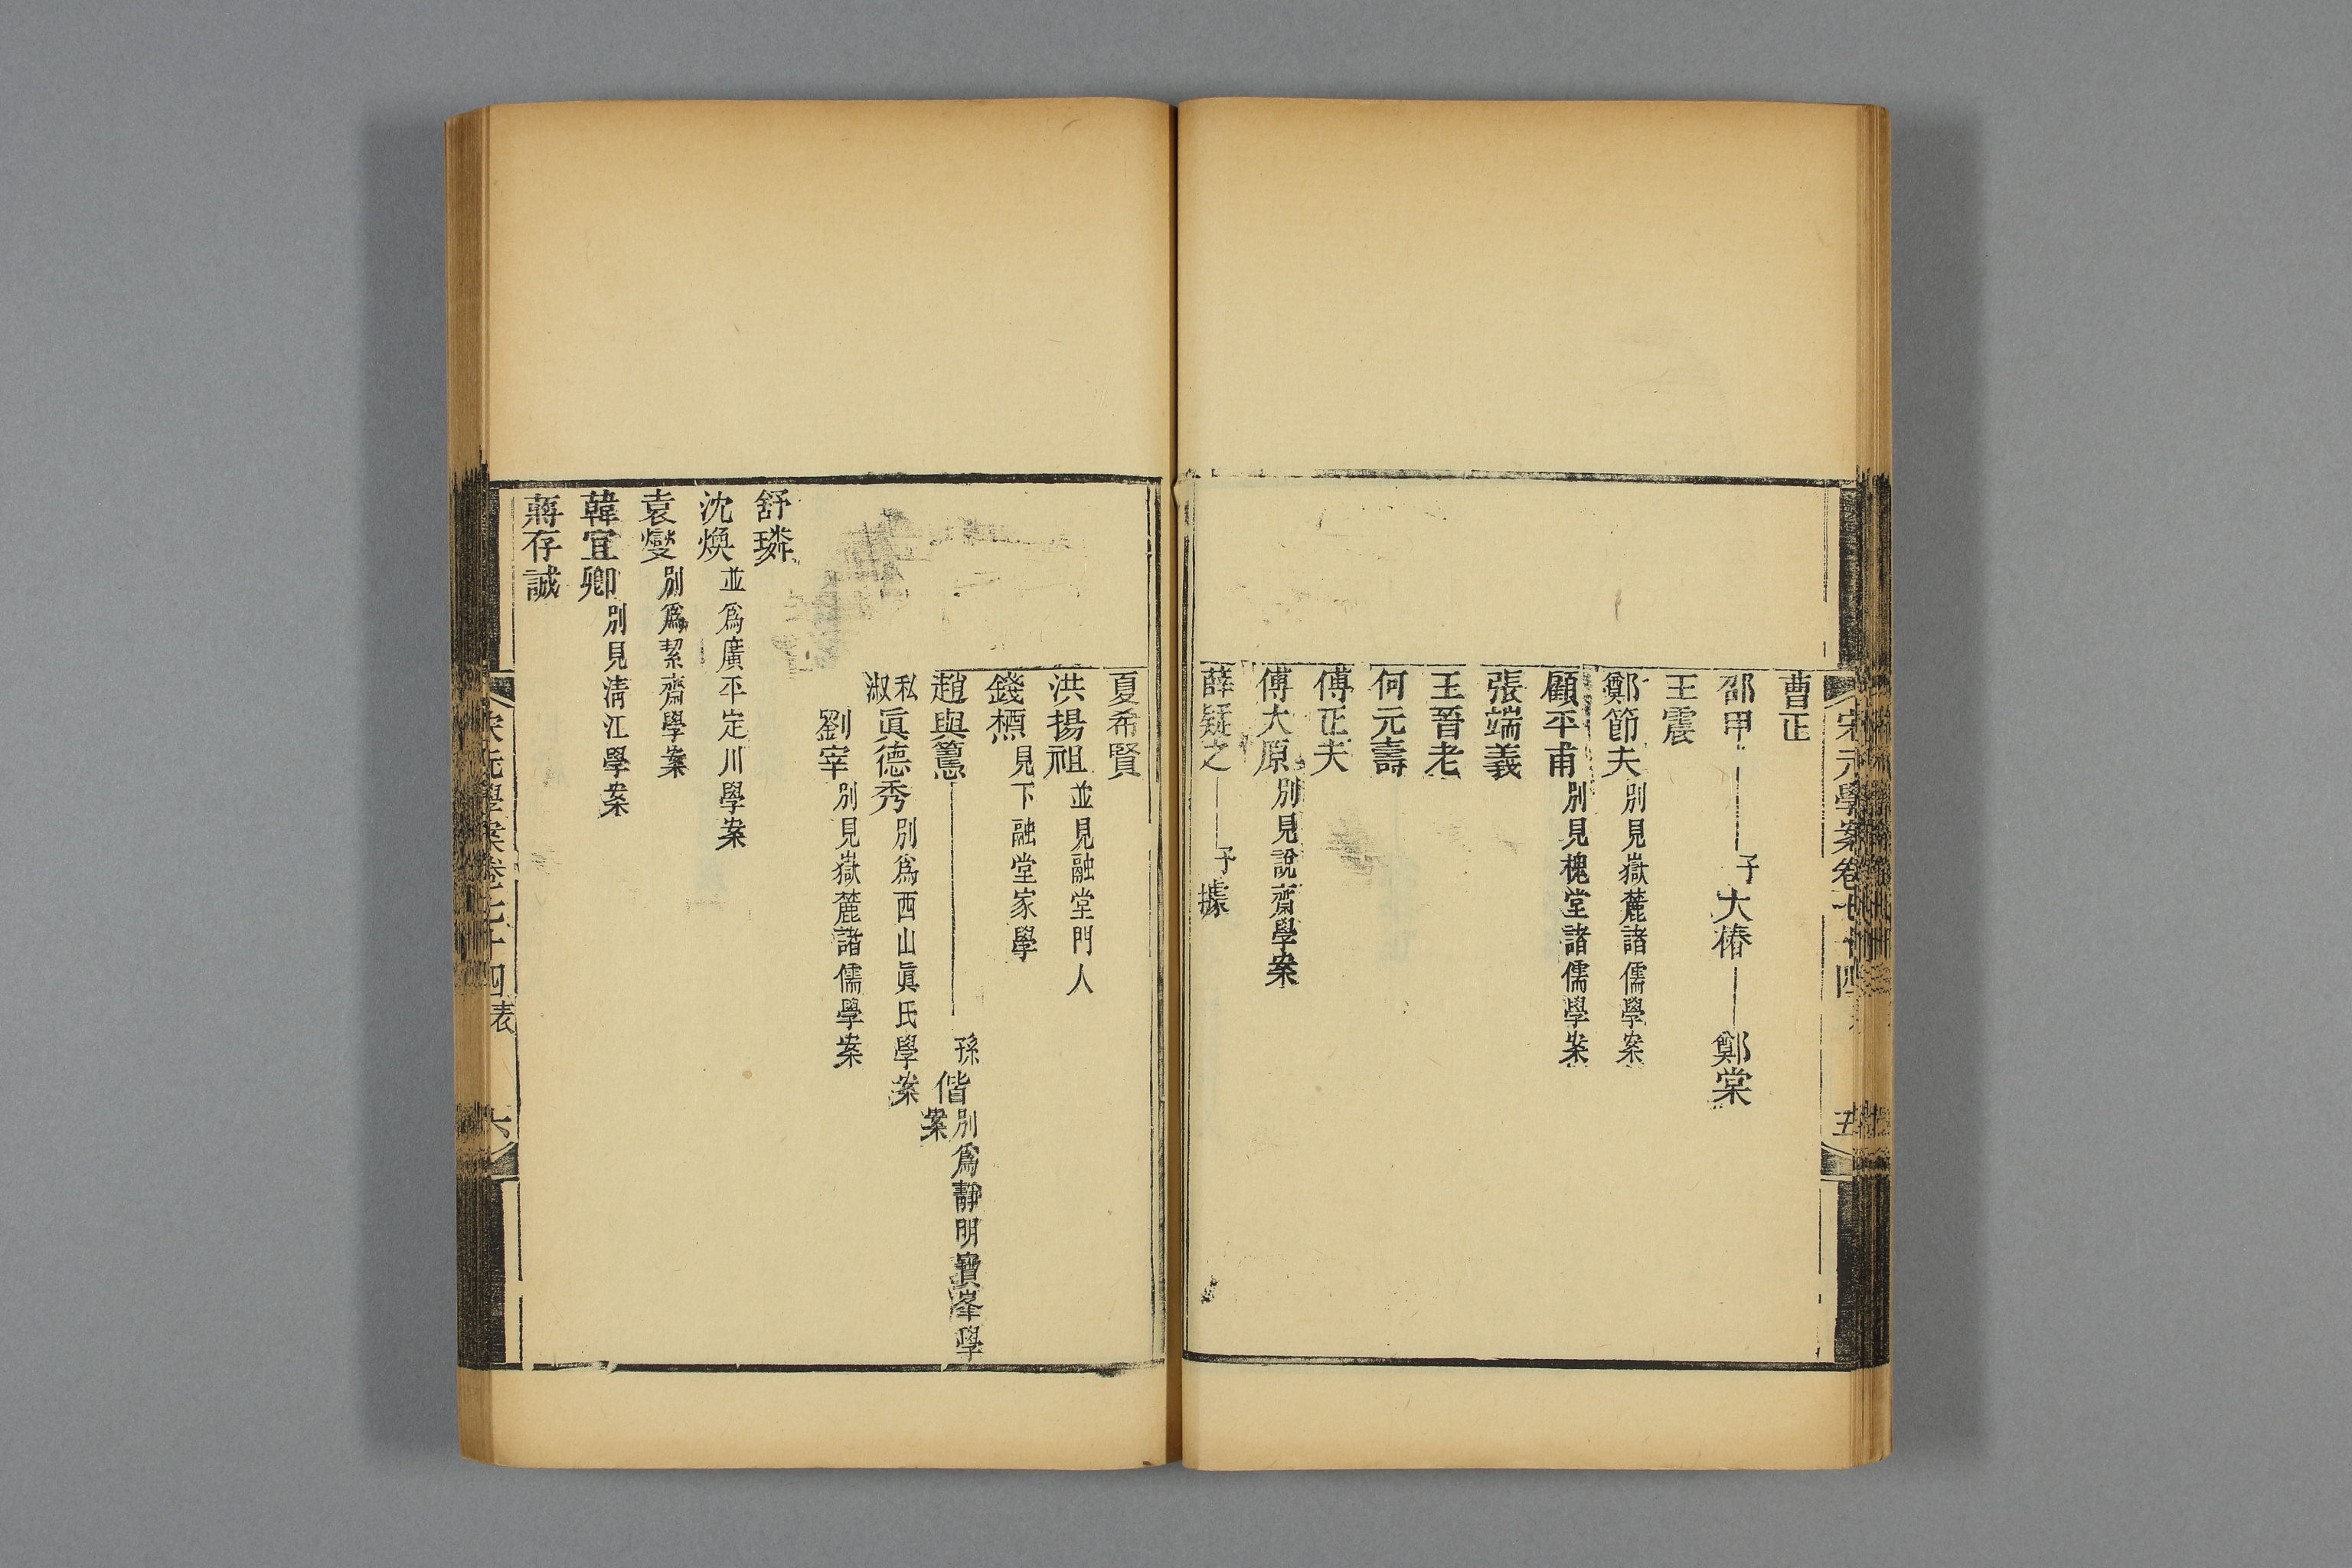 宋元學案卷七十四 表 五
曹正
邵甲 子大椿 鄭棠
王震
鄭節夫別見嶽麓諸儒學案
顧平甫別見槐堂諸儒學案
張端義
王晉老
何元壽
傅正夫
傅大原別見說齋學案
薛疑之 子據
夏希賢
洪揚祖並見融堂門人
錢槱見下融堂家學
趙與𥲅 孫偕別爲靜明寶峯學案
私淑眞德秀別爲西山眞氏學案
劉宰別見嶽麓諸儒學案
舒璘
沈煥並爲廣平定川學案
袁燮別爲絜齋學案
韓宜卿別見清江學案
蔣存誠
宋元學案卷七十四 表 六